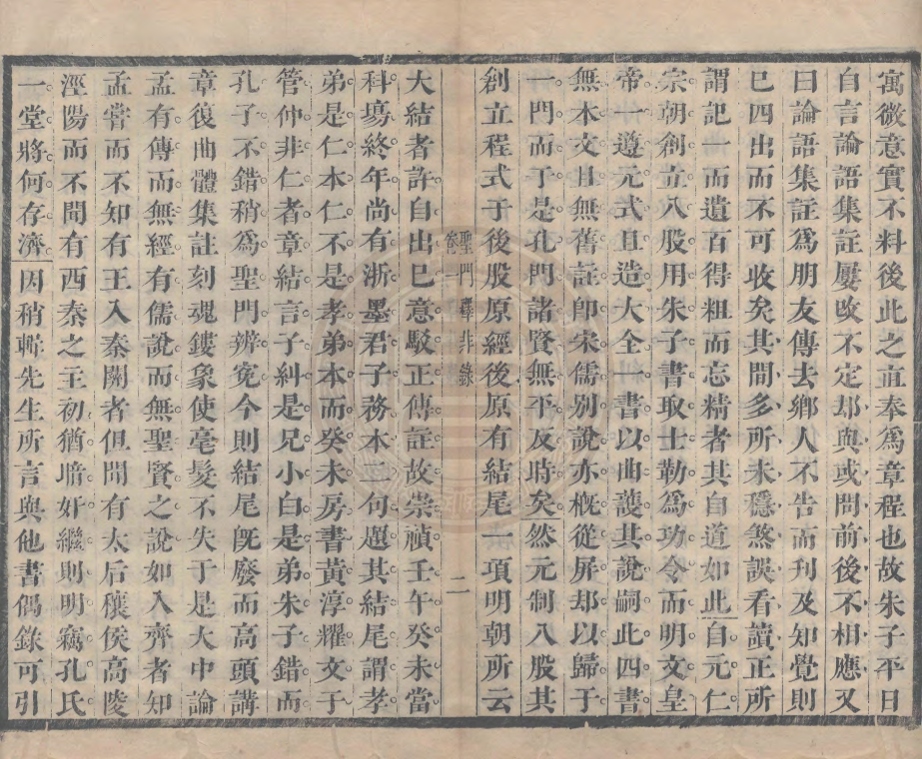 寓微意實不料後此之直奉爲章程也故朱子平日
自言論語集註屢改不定却與或問前後不相應又
曰論語集註爲朋友傳去鄉人不告而刊及知覺則
已四出而不可收矣其間多所未穩煞誤看讀正所
謂記一而遺百得粗而忘精者其自道如此自元仁
宗朝創立八股用朱子書取士勒爲功令而明文皇
帝一遵元式且造大全一書以曲護其說嗣此四書
無本文且無舊註卽宋儒別說亦槪從屏却以歸于
一門而于是孔門諸賢無平反時矣然元制八股其
創立程式于後股原經後原有結尾一項明朝所云
聖門釋非錄
卷一
二
大結者許自出已意駁正傳註故崇禎壬午癸未當
科塲終年尚有浙墨君子務本二句題其結尾謂孝
弟是仁本仁不是孝弟本而癸未房書黃淳耀文于
管仲非仁者章結言子糾是兄小白是弟朱子錯而
孔子不錯稍爲聖門辨寃今則結尾旣廢而高頭講
章復曲體集註刻魂鏤象使毫髮不失于是大中論
孟有傳而無經有儒說而無聖賢之說如入齊者知
孟嘗而不知有王入秦關者但聞有太后穰侯高陵
涇陽而不聞有西秦之主初猶暗奸繼則明竊孔氏
一堂將何存濟因稍輯先生所言與他書偶錄可引